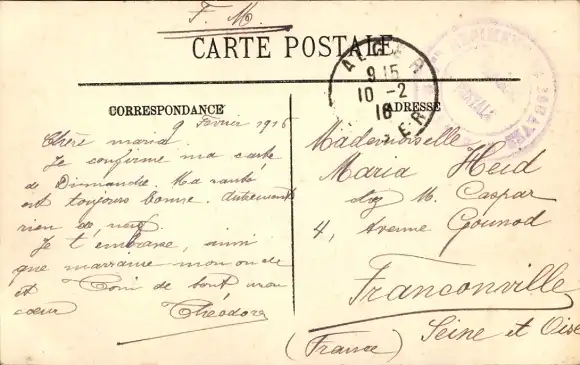 F. M.
CARTE POSTALE
ALGER
9 15
10 -2
16
CORRESPONDANCE
ADRESSE
9 Février 1916
Chère maria.
Je confirme ma carte
de Dimanche. Ma santé
est toujours bonne. Autrement
rien de neuf
Je t'embrasse, ainsi
que marraine mon oncle
et Toni de tout mon
cœur Théodore
Mademoiselle
Maria Heid
chez M. Caspar
4, Avenue Gounod
Franconville
Seine et Oise
(France)